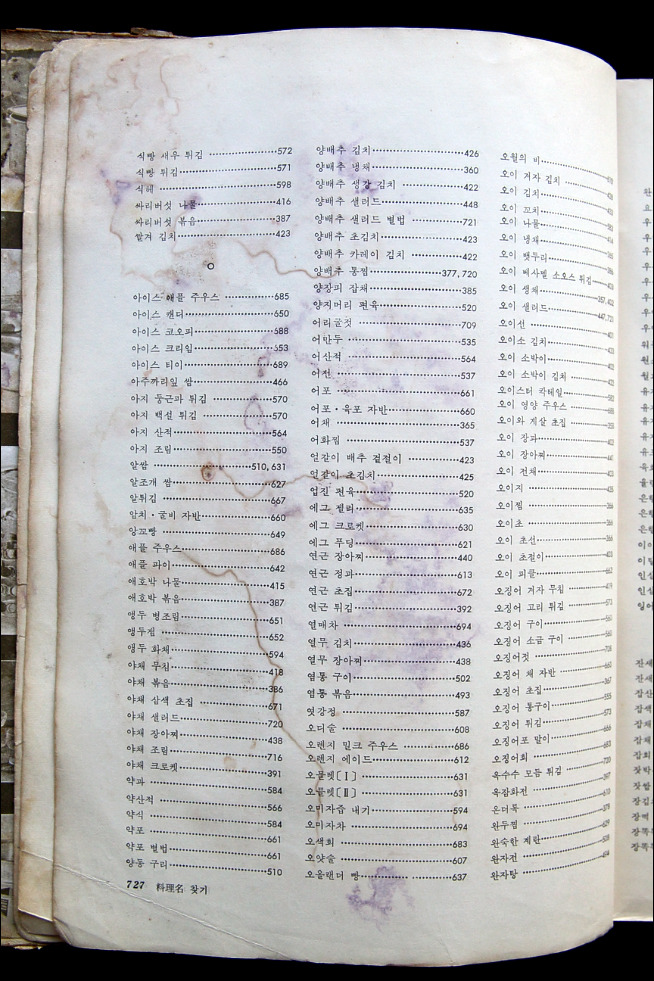 식빵 새우 튀김 ……572
식빵 튀김……571
식혜 ……598
싸리버섯 나물……416
싸리버섯 볶음……387
쌀겨 김치……423
ㅇ
아이스 애플 주우스 ……685
아이스 캔디……650
아이스 코오피……688
아이스 크리임……653
아이스 티이……689
아주까리잎 쌈……466
아지 둥근파 튀김 ……570
아지 백설 튀김 ……570
아지 산적……564
아지 조림……550
알쌈 ……510, 631
알조개 쌈……627
알튀김 ……667
암치·굴비 자반……660
앙꼬빵 ……649
애플 주우스……686
애플 파이……642
애호박 나물……415
애호박 볶음……387
앵두 병조림……651
앵두편 ……652
앵두 화채……594
야채 무침……418
야채 볶음……386
야채 삼색 초집 ……671
야채 샐러드……720
야채 장아찌……438
야채 조림……716
야채 크로켓……391
약과 ……584
약산적 ……566
약식 ……584
약포 ……661
약포 별법……661
양동 구리……510
양배추 김치……426
양배추 냉채……360
양배추 생강 김치 ……422
양배추 샐러드……448
양배추 샐러드 별법 ……721
양배추 초김치……423
양배추 카레이 김치 ……422
양배추 통찜……377, 720
양장피 잡채……385
양지머리 편육……520
어리굴젓 ……709
어만두 ……535
어산적 ……564
어전 ……537
어포 ……661
어포·육포 자반……660
어채 ……365
어화찜 ……537
얼갈이 배추 겉절이 ……423
얼갈이 초김치……425
업진 편육……520
에그 젤리……635
에그 크로켓……630
에그 푸딩……621
연근 장아찌……440
연근 정과……613
연근 초집……672
연근 튀김……392
열매차 ……694
열무 김치……436
열무 장아찌……438
염통 구이……502
염통 볶음……493
엿강정 ……587
오디술 ……608
오렌지 밀크 주우스 ……686
오렌지 에이드……612
오믈렛〔Ⅰ〕……631
오믈렛〔Ⅱ〕……631
오미자즙 내기……594
오미자차 ……694
오색회 ……683
오얏술 ……607
오올랜더 빵……637
오월의 비
오이 겨자 김치
오이 김치
오이 꼬치
오이 나물
오이 냉채
오이 뱃두리
오이 베샤멜 소오스 튀김
오이 생채
오이 샐러드
오이선
오이소 김치
오이 소박이
오이 소박이 김치
오이스터 칵테일
오이 영양 주우스
오이와 게살 초집
오이 장과
오이 장아찌
오이 전채
오이지
오이찜
오이초
오이 초선
오이 초절이
오이 피클
오징어 겨자 무침
오징어 고리 튀김
오징어 구이
오징어 소금 구이
오징어젓
오징어 채 자반
오징어 초집
오징어 통구이
오징어 튀김
오징어포 말이
오징어회
옥수수 모듬 튀김
옥잠화전
온더록
완두찜
완숙한 계란
완자전
완자탕
727 料理名 찾기